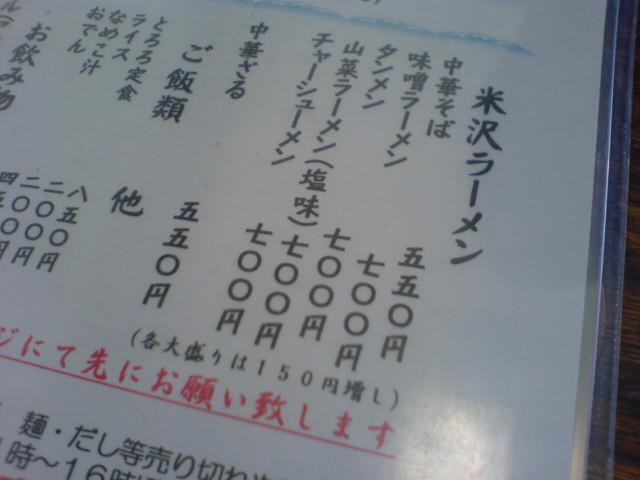 米沢ラーメン
中華そば 五五〇円
味噌ラーメン 七〇〇円
タンメン 七〇〇円
山菜ラーメン(塩味) 七〇〇円
チャーシューメン 七〇〇円
中華ざる 五五〇円
(各大盛りは150円増し)
ご飯類 他
とろろ定食 八五〇円
ライス 二〇〇円
なめこ汁 二〇〇円
おでん
お飲み物
ジにて先にお願い致します
麺・だし等売り切れ
時～16時